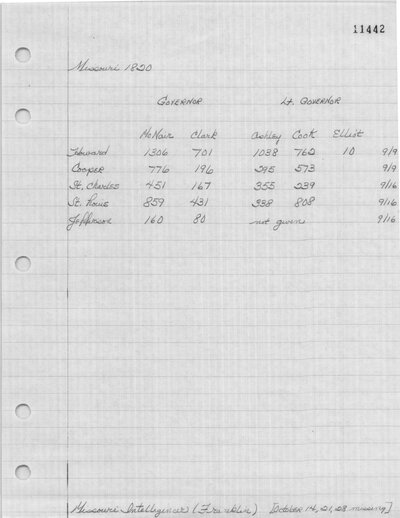 11442
Missouri 1820
GOVERNOR Lt. GOVERNOR
McNair Clark Ashley Cook Elliot
Howard 1306 701 1038 762 10 9/9
Cooper 776 196 295 573 9/9
St. Charles 451 167 355 239 9/16
St. Louis 859 431 338 808 9/16
Jefferson 160 80 not given 9/16
Missouri Intelligencer (Franklin) [October 14, 21, 28 missing]